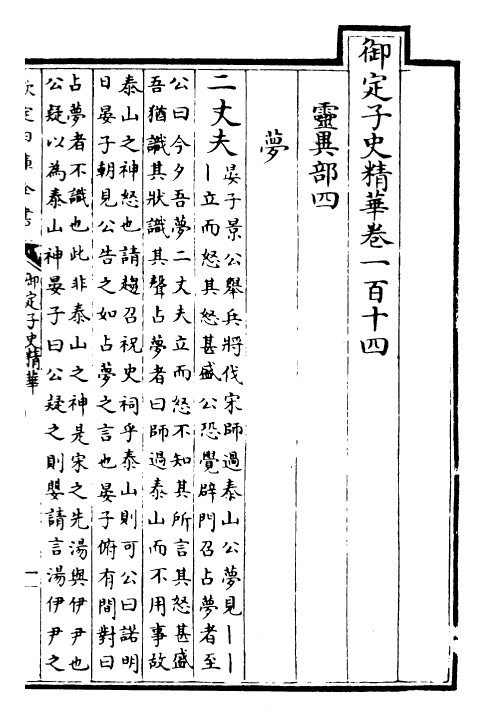 御定子史精華卷一百十四
靈異部四
夢
二丈夫
晏子景公舉兵將伐宋師過泰山公夢見丨丨
丨立而怒其怒甚盛公恐覺辟門召占夢者至
公曰今夕吾夢二丈夫立而怒不知其所言其怒甚盛
吾猶識其狀識其聲占夢者曰師過泰山而不用事故
泰山之神怒也請趨召祝史祠乎泰山則可公曰諾明
日晏子朝見公告之如占夢之言也晏子俯有間對曰
占夢者不識也此非泰山之神是宋之先湯與伊尹也
公疑以為泰山神晏子曰公疑之則嬰請言湯伊尹之
欽定四庫全書
御定子史精華
一